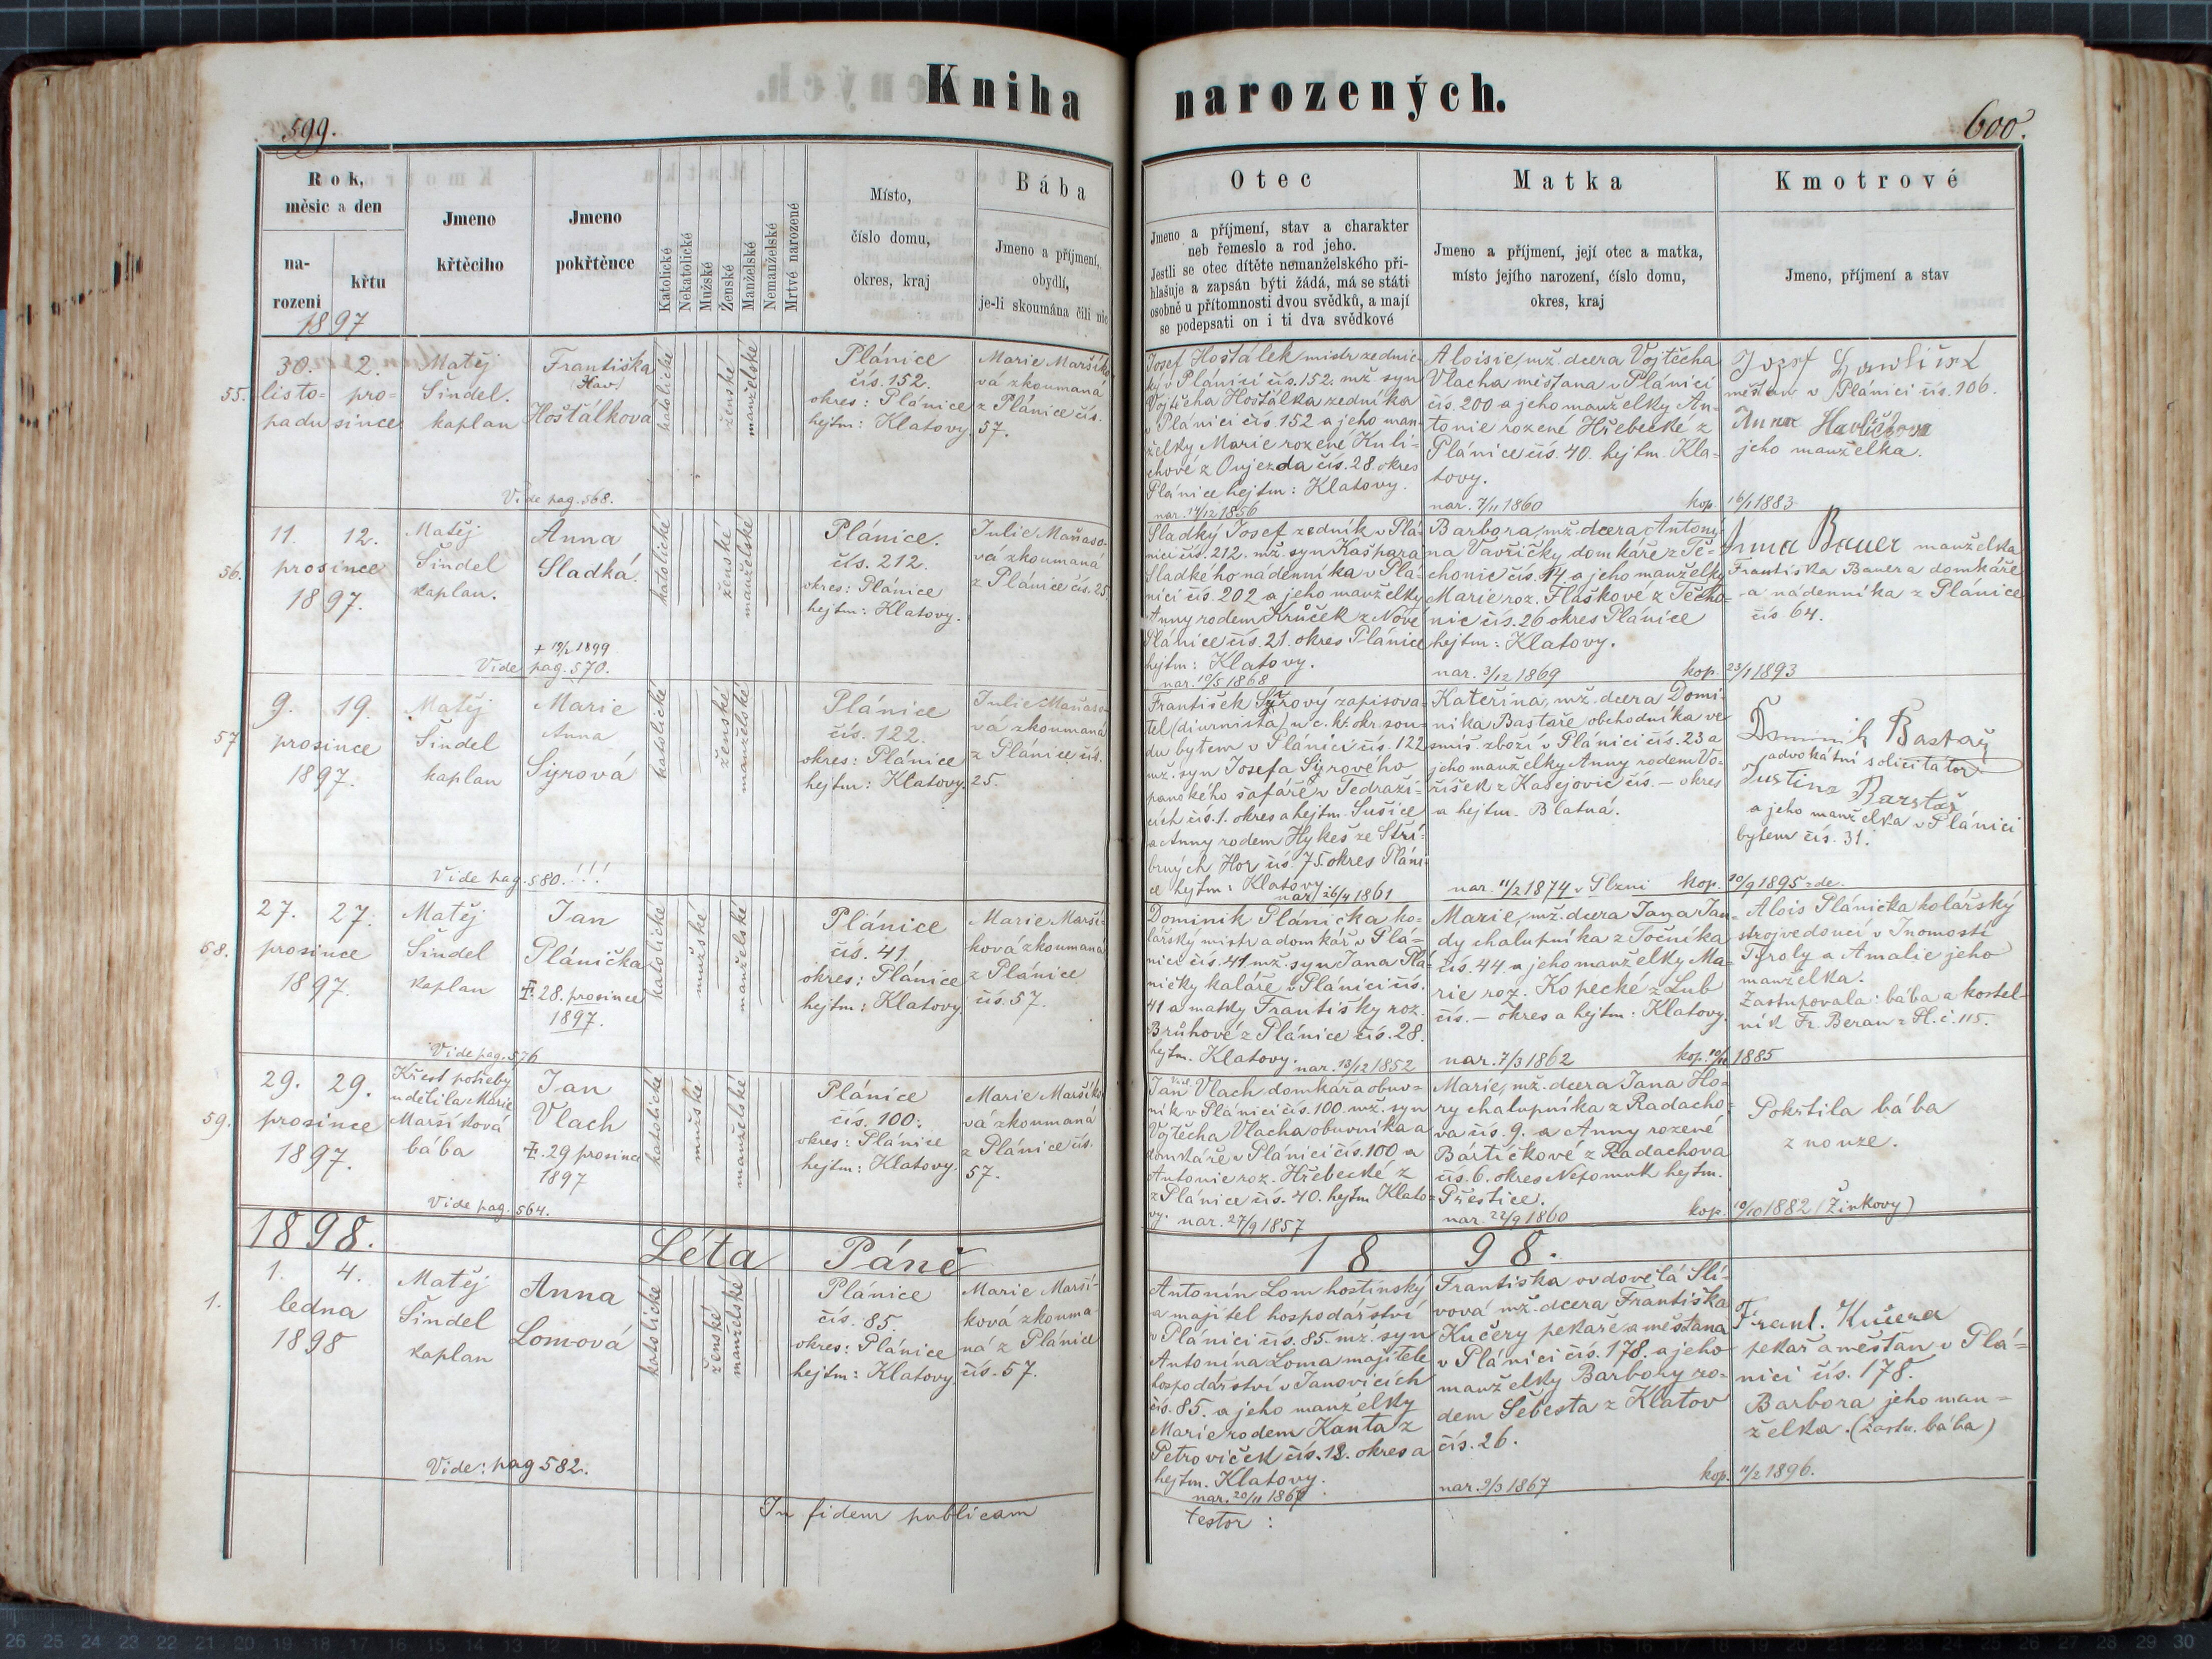 Kniha narozených.
599.
600.
Rok, měsíc a den
narození
křtu
Jmeno křtěcího
Jmeno pokřtěnce
Katolické
Nekatolické
Mužské
Ženské
Manželské
Nemanželské
Mrtvé narozené
Místo,
číslo domu,
okres, kraj
Bába
Jmeno a příjmení,
obydlí,
je-li skoumána čili nic
Otec
Jmeno a příjmení, stav a charakter
neb řemeslo a rod jeho.
Jestli se otec dítěte nemanželského při-
hlašuje a zapsán býti žádá, má se státi
osobně u přítomnosti dvou svědků, a mají
se podepsati on i ti dva svědkové
Matka
Jmeno a příjmení, její otec a matka,
místo jejího narození, číslo domu,
okres, kraj
Kmotrové
Jmeno, příjmení a stav
1897
55.
30. 2.
listo- pro-
padu since
Matěj
Šindel.
kaplan
Františka
Hošťálková
katolické
ženské
manželské
Plánice
čís. 152.
okres: Plánice
hejtm: Klatovy.
Marie Maršíko-
vá zkoumaná
z Plánice čís.
57.
Vide pag. 568.
Josef Hošťálek mistr zednic-
ký v Plánici čís. 152. mž. syn
Vojtěcha Hošťálka zedníka
v Plánici čís. 152 a jeho man-
želky Marie rozené Kuli-
chové z Oujezda čís. 28. okres
Plánice hejtm: Klatovy.
nar. 14/12 1856
Aloisie, mž. dcera Vojtěcha
Vlacha měšťana v Plánici
čís. 200 a jeho manželky An-
tonie rozené Hřebecké z
Plánice čís. 40. hejtm. Kla-
tovy.
nar. 7/11 1860 kop. 16/1 1883
Jozef Hawlíček
měšťan v Plánici čís. 106.
Anna Havlíčkova
jeho manželka.
56.
11. 12.
prosince
1897.
Matěj
Šindel
kaplan.
Anna
Sladká.
katolické
ženské
manželské
Plánice.
čís. 212.
okres: Plánice
hejtm: Klatovy.
Julie Maňaso-
vá zkoumaná
z Plánice čís. 25.
1899
Vide pag. 570.
Sladký Josef zedník v Plá-
nici čís. 212. mž. syn Kašpara
Sladkého nádenníka v Plá-
nici čís. 202 a jeho manželky
Anny rodem Krůček z Nové
Plánice čís. 21. okres Plánice
hejtm: Klatovy.
nar. 10/5 1868
Barbora, mž. dcera Antoní-
na Vavřičky domkáře z Tě-
chonic čís. 14 a jeho manželky
Marie roz. Fláškové z Těcho-
nic čís. 26 okres Plánice
hejtm: Klatovy.
nar. 3/12 1869 kop. 23/1 1893
Anna Bauer manželka
Františka Bauera domkáře
a nádenníka z Plánice
čís 64.
57
9. 19.
prosince
1897.
Matěj
Šindel
kaplan
Marie
Anna
Syrová
katolické
ženské
manželské
Plánice
čís. 122.
okres: Plánice
hejtm: Klatovy.
Julie Maňaso-
vá zkoumaná
z Plánice čís.
25.
Vide pag. 580.!!!
František Syrový zapisova-
tel (diurnista) u c. k. okr. sou-
du bytem v Plánici čís. 122
mž. syn Josefa Syrového
panského šafáře v Tedraži-
cích čís. 1. okres a hejtm. Sušice
a Anny rodem Hykeš ze Stří-
brných Hor čís. 75. okres Pláni-
ce hejtm: Klatovy
nar. 26/4 1861
Kateřina, mž. dcera Domi-
nika Baštaře obchodníka ve
smíš. zboží v Plánici čís. 23 a
jeho manželky Anny rodem Vo-
říšek z Kasejovic čís. – okres
a hejtm. Blatná.
nar. 11/2 1874 v Plzni kop. 10/9 1895 zde.
Dominik Bastař
advokátní solicitator
Justina Barstař
a jeho manželka v Plánici
bytem čís. 31.
58.
27. 27.
prosince
1897.
Matěj
Šindel
kaplan
Jan
Plánička
‡. 28. prosince
1897.
katolické
mužské
manželské
Plánice
čís. 41.
okres: Plánice
hejtm: Klatovy.
Marie Marší-
ková zkoumaná
z Plánice
čís. 57.
Vide pag. 576
Dominik Plánička ko-
lářský mistr a domkář v Plá-
nici čís. 41. mž. syn Jana Plá-
ničky koláře v Plánici čís.
41 a matky Františky roz.
Brůhové z Plánice čís. 28.
hejtm. Klatovy. nar. 13/12 1852
Marie, mž. dcera Jana Jan-
dy chalupníka z Točníka
čís. 44 a jeho manželky Ma-
rie roz. Kopecké z Lub
čís. – okres a hejtm: Klatovy.
nar. 7/3 1862 kop. 1885
Alois Plánička kolářský
strojvedoucí v Inomostí
Tyroly a Amalie jeho
manželka.
Zastupovala: bába a kostel-
ník Fr. Beran z Pl. č. 115.
59.
29. 29.
prosince
1897.
Křest potřeby
udělila Marie
Maršíková
bába
Jan
Vlach
‡. 29 prosince
1897
katolické
mužské
manželské
Plánice
čís. 100.
okres: Plánice
hejtm: Klatovy.
Marie Maršíko-
vá zkoumaná
z Plánice čís.
57.
Vide pag. 564.
Jan Vlach domkář a obuv-
ník v Plánici čís. 100. mž. syn
Vojtěcha Vlacha obuvníka a
domkáře v Plánici čís. 100. a
Antonie roz. Hřebecké z
z Plánice čís. 40. hejtm Klato-
vy. nar. 27/9 1857
Marie, mž. dcera Jana Ho-
ry chalupníka z Radacho-
va čís. 9. a Anny rozené
Bártíčkové z Radachova
čís. 6. okres Nepomuk hejtm.
Přestice.
nar. 22/9 1860 kop. 10/10 1882 (Žinkovy)
Pokřtila bába
z nouze.
1898. Léta Páně 1898.
1.
1. 4.
ledna
1898
Matěj
Šindel
kaplan
Anna
Lomová
katolické
ženské
manželské
Plánice
čís. 85.
okres: Plánice
hejtm: Klatovy.
Marie Marší-
ková zkouma-
ná z Plánice
čís. 57.
Vide: pag 582.
Antonín Lom hostinský
a majitel hospodářství
v Plánici čís. 85. mž. syn
Antonína Loma majitele
hospodářství v Janovicích
čís. 85. a jeho manželky
Marie rodem Kanta z
Petroviček čís. 12. okres a
hejtm. Klatovy.
nar. 20/11
Františka ovdovělá Slí-
vová mž. dcera Františka
Kučery pekaře a měšťana
v Plánici čís. 178. a jeho
manželky Barbory ro-
dem Šebesta z Klatov
čís. 26.
nar. 9/3 1867 kop. 11/2 1896.
Frant. Kučera
pekař a měšťan v Plá-
nici čís. 178.
Barbora jeho man-
želka. (zastu. bába)
In fidem publicam testor: